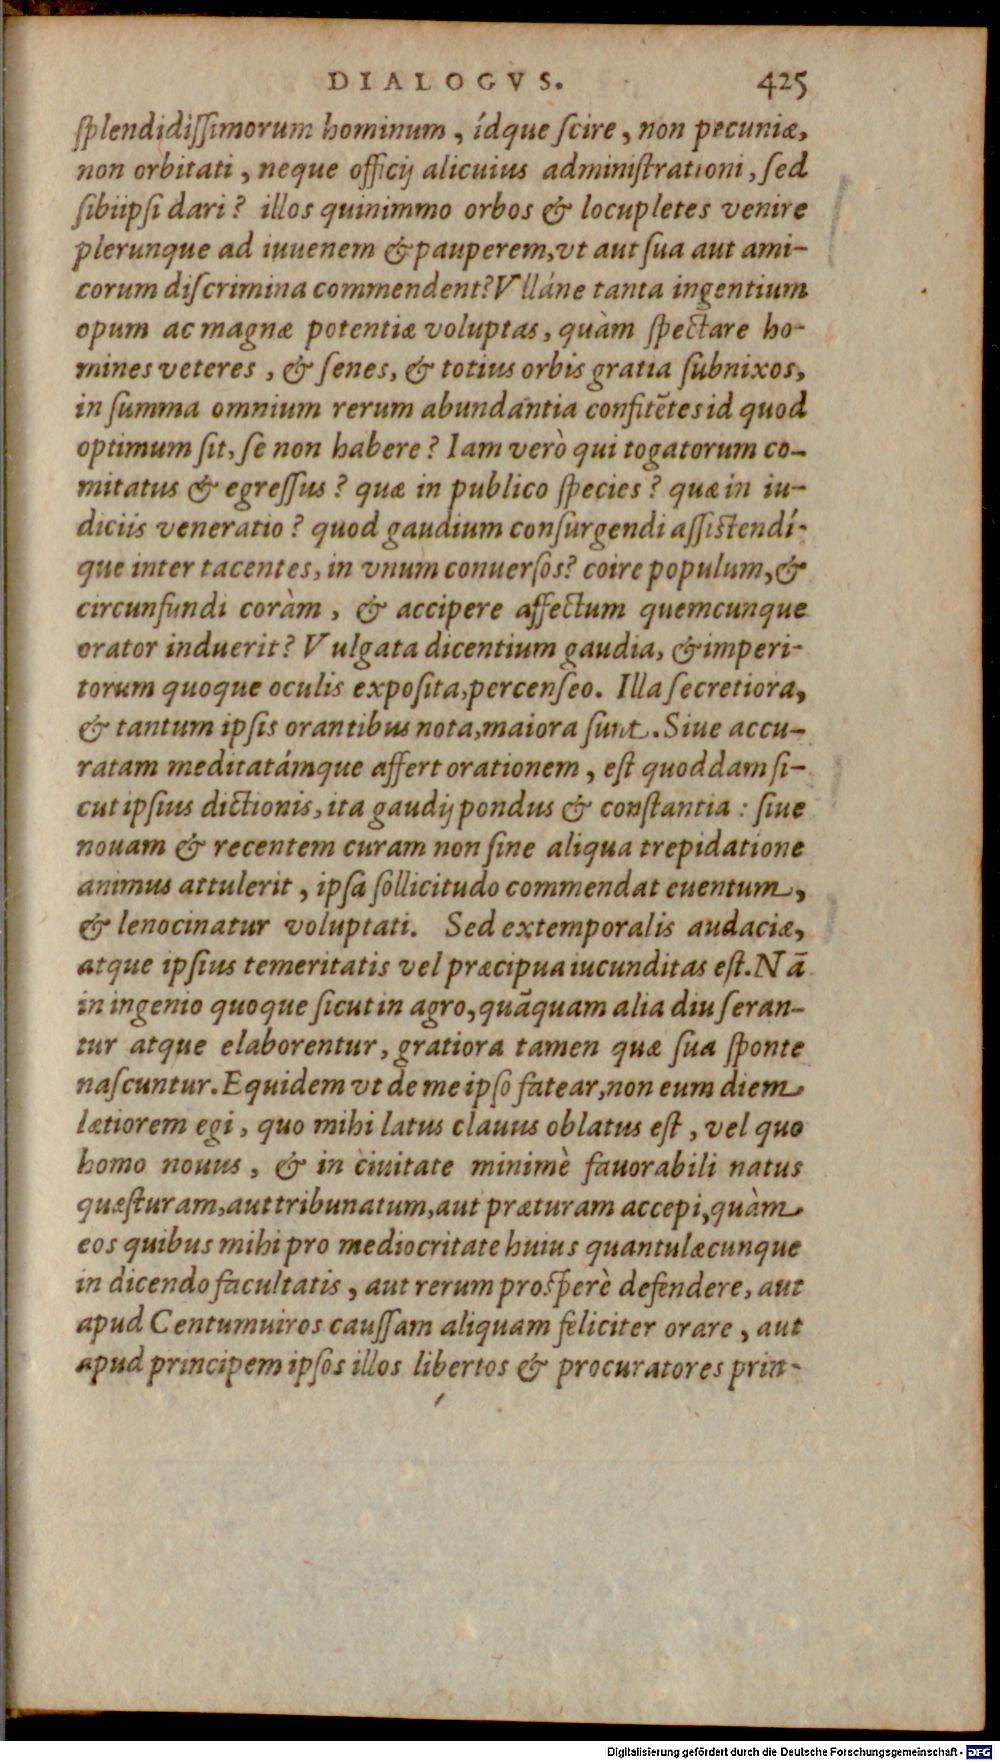 DIALOGVS. 425
ſplendidiſſimorum hominum, ídque ſcire, non pecuniæ,
non orbitati, neque officij alicuius adminiſtrationi, ſed
ſibiipſi dari? illos quinimmo orbos & locupletes venire
plerunque ad iuuenem & pauperem, vt aut ſua aut ami-
corum diſcrimina commendent? Vlláne tanta ingentium
opum ac magnæ potentiæ voluptas, quàm ſpectare ho-
mines veteres, & ſenes, & totius orbis gratia ſubnixos,
in ſumma omnium rerum abundantia confitētes id quod
optimum ſit, ſe non habere? Iam verò qui togatorum co-
mitatus & egreſſus? quæ in publico ſpecies? quæ in iu-
diciis veneratio? quod gaudium conſurgendi aſſiſtendí-
que inter tacentes, in vnum conuerſos? coire populum, &
circunfundi coràm, & accipere affectum quemcunque
orator induerit? Vulgata dicentium gaudia, & imperi-
torum quoque oculis expoſita, percenſeo. Illa ſecretiora,
& tantum ipſis orantibus nota, maiora ſunt. Siue accu-
ratam meditatámque affert orationem, eſt quoddam ſi-
cut ipſius dictionis, ita gaudij pondus & conſtantia: ſiue
nouam & recentem curam non ſine aliqua trepidatione
animus attulerit, ipſa ſollicitudo commendat euentum,
& lenocinatur voluptati. Sed extemporalis audaciæ,
atque ipſius temeritatis vel præcipua iucunditas eſt. Nā
in ingenio quoque ſicut in agro, quāquam alia diu ſeran-
tur atque elaborentur, gratiora tamen quæ ſua ſponte
naſcuntur. Equidem vt de me ipſo fatear, non eum diem
lætiorem egi, quo mihi latus clauus oblatus eſt, vel quo
homo nouus, & in ciuitate minimè fauorabili natus
quæſturam, aut tribunatum, aut præturam accepi, quàm
eos quibus mihi pro mediocritate huius quantulæcunque
in dicendo facultatis, aut rerum proſperè defendere, aut
apud Centumuiros cauſſam aliquam feliciter orare, aut
apud principem ipſos illos libertos & procuratores prin-
Digitalisierung gefördert durch die Deutsche Forschungsgemeinschaft - DFG